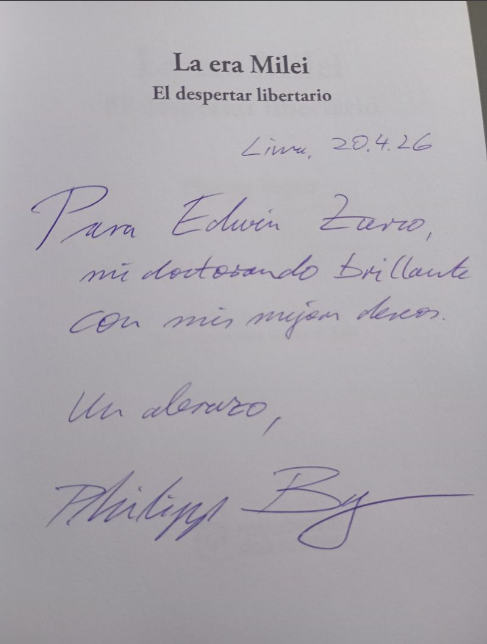 La era Milei
El despertar libertario
Lima, 20.4.26
Para Edwin Zarco,
mi doctorando brillante
con mis mejores deseos.
Un abrazo,
Philipp